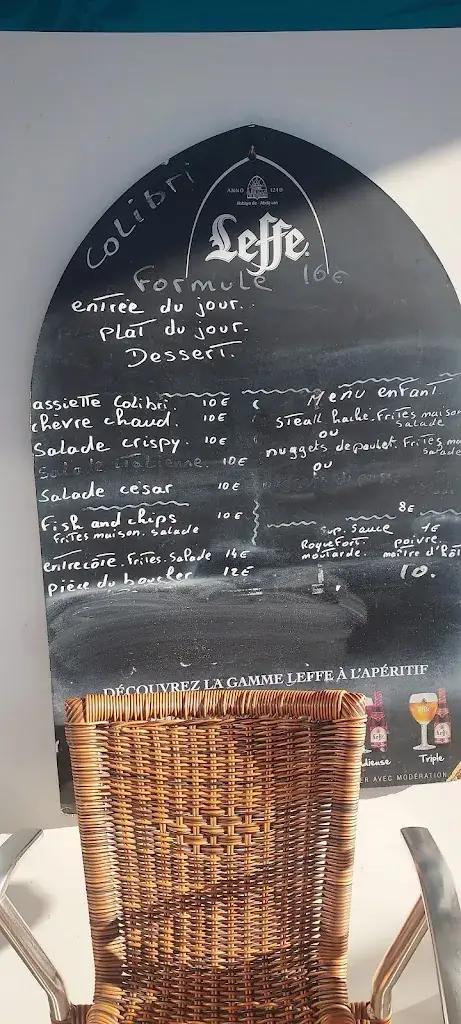 Colibri
ANNO 1240
Leffe
Formule 16€
entrée du jour.
plat du jour.
Dessert.
assiette Colibri 10€
chevre chaud. 10€
Salade crispy. 10€
Salade italienne. 10€
Salade cesar 10€
Fish and chips 10€
Frites maison. salade
entrecote. Frites. Salade 14€
pièce du boucher 12€
Menu enfant.
STeak haché. Frites maison
salade
ou
nuggets de poulet. Frites ma
salade
ou
8€
Sup. Sauce 1€
Roquefort. poivre.
moutarde. maître d'hôt
10.
DÉCOUVREZ LA GAMME LEFFE À L'APÉRITIF
dieuse
Triple
R AVEC MODÉRATION